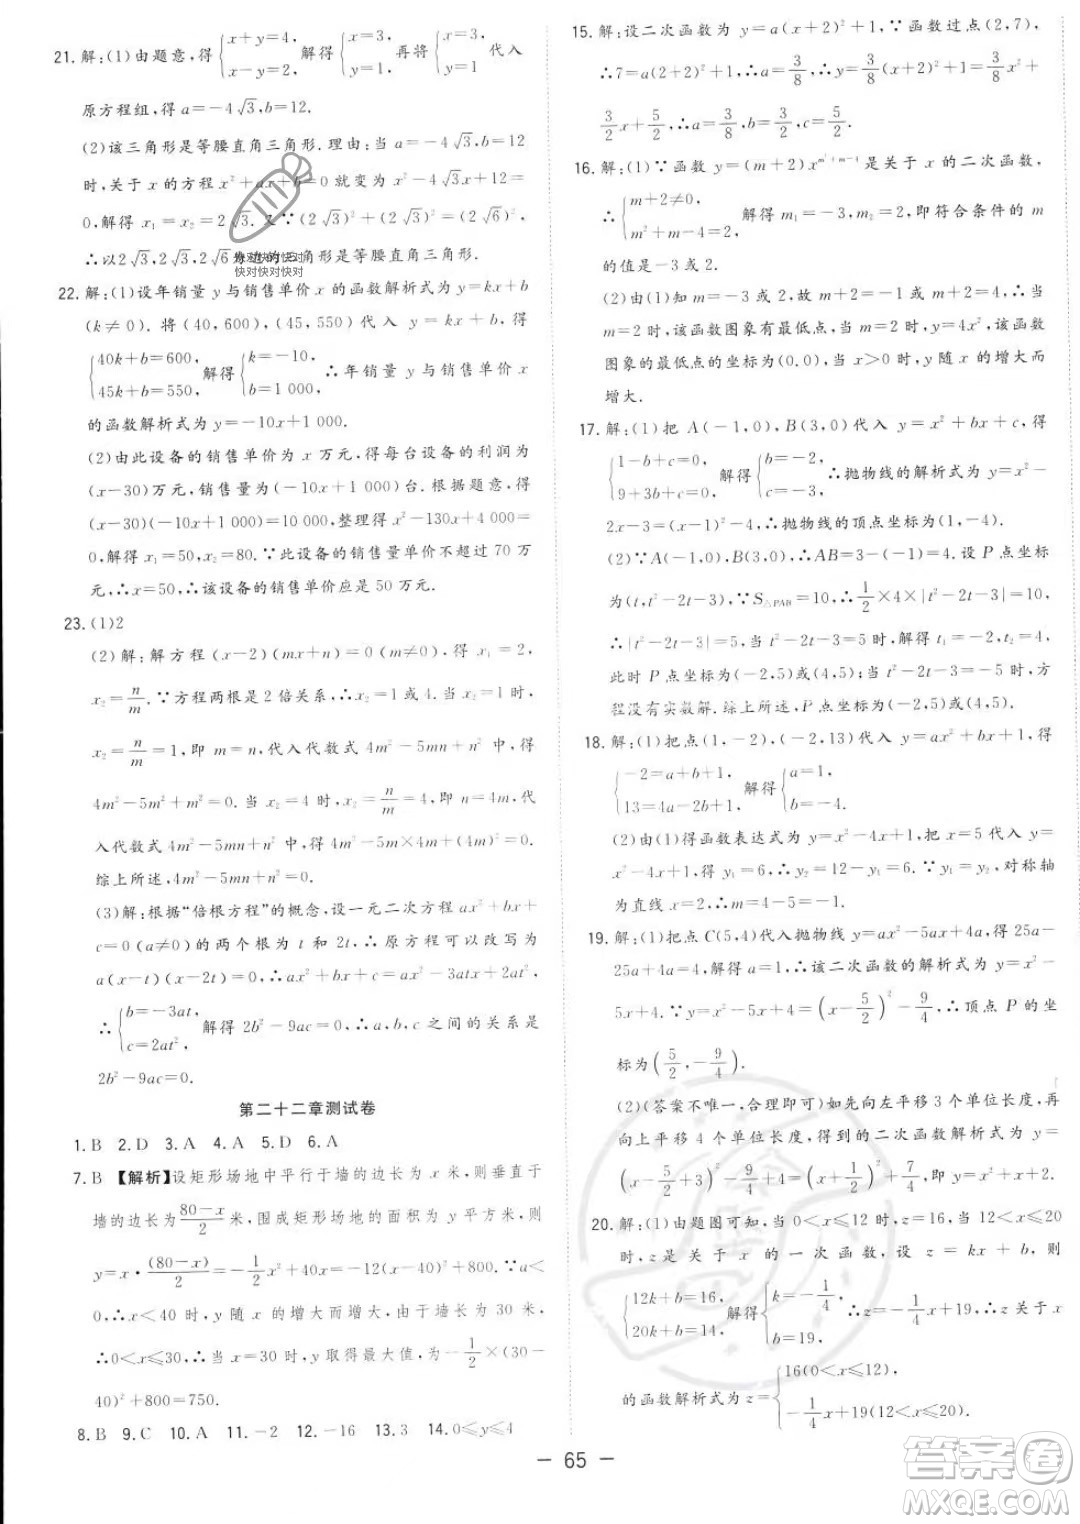 21. 解:(1)由题意,得{x+y=4, x−y=2, 解得{x=3, y=1. 再将{x=3, y=1 代入
原方程组,得 a=−4√3,b=12.
(2)该三角形是等腰直角三角形.理由:当 a=−4√3,b=12
时,关于 x 的方程 x²+ax+b=0 就变为 x²−4√3x+12=
0,解得 x₁=x₂=2√3. 又∵(2√3)²+(2√3)²=(2√6)²,
∴以 2√3,2√3,2√6 为边的三角形是等腰直角三角形.
快对快对快对
22. 解:(1)设年销量 y 与销售单价 x 的函数解析式为 y=kx+b
(k≠0). 将 (40,600),(45,550) 代入 y=kx+b,得
{40k+b=600, 45k+b=550, 解得{k=−10, b=1 000. ∴年销量 y 与销售单价 x
的函数解析式为 y=−10x+1 000.
(2)由此设备的销售单价为 x 万元,则每台设备的利润为
(x−30)万元,销售量为(−10x+1 000)台.根据题意,得
(x−30)(−10x+1 000)=10 000,整理得 x²−130x+4 000=
0,解得 x₁=50,x₂=80.∵此设备的销售单价不超过 70 万
元,∴x=50,∴该设备的销售单价应是 50 万元.
23. (1)2
(2)解:解方程(x−2)(mx+n)=0(m≠0),得 x₁=2,
x₂=n/m.∵方程两根是 2 倍关系,∴x₂=1或4.当x₂=1时,
x₂=n/m=1,即 m=n,代入代数式 4m²−5mn+n² 中,得
4m²−5m²+m²=0. 当 x₂=4 时,x₂=n/m=4,即 n=4m,代
入代数式 4m²−5mn+n²,得 4m²−20m²+(4m)²=0.
综上所述,4m²−5mn+n²=0.
(3)解:根据“倍根方程”的概念,设一元二次方程 ax²+bx+
c=0(a≠0)的两个根为 t 和 2t,∴原方程可以改写为
a(x−t)(x−2t)=0,∴ax²+bx+c=ax²−3atx+2at²,
∴{b=−3at, c=2at², 解得 2b²−9ac=0.∴a,b,c 之间的关系是
2b²−9ac=0.
第二十二章测试卷
1. B 2. D 3. A 4. A 5. D 6. A
7. B 【解析】设矩形场地中平行于墙的边长为 x 米,则垂直于
墙的边长为(80−x)/2 米,围成矩形场地的面积为 y 平方米,则
y=x·(80−x)/2=−1/2x²+40x=−1/2(x−40)²+800.∵−1/2<
0,∴x<40 时,y 随 x 的增大而增大,由于墙长为 30 米,
∴0<x≤30,∴当 x=30 时,y 取得最大值,为−1/2×(30−
40)²+800=750.
8. B 9. C 10. A 11. −2 12. −16 13. 3 14. 0≤y≤4
15. 解:设二次函数为 y=a(x+2)²+1,∵函数过点(2,7),
∴7=a(2+2)²+1,∴a=3/8,∴y=3/8(x+2)²+1=3/8x²+
3/2x+5/2,∴a=3/8,b=3/2,c=5/2.
16. 解:(1)∵函数 y=(m+2)x^(m²+m−4) 是关于 x 的二次函数,
∴{m+2≠0, 解得 m₁=−3,m₂=2,即符合条件的 m
的值是−3 或 2.
(2)由(1)知 m=−3 或 2,故 m+2=−1 或 m+2=4,∴当
m=2 时,该函数图象有最低点,当 m=2 时,y=4x²,该函数
图象的最低点的坐标为(0,0),当 x>0 时,y 随 x 的增大而
增大.
17. 解:(1)把 A(−1,0),B(3,0)代入 y=x²+bx+c,得
{1−b+c=0, 9+3b+c=0, 解得{b=−2, c=−3, ∴抛物线的解析式为 y=x²−
2x−3=(x−1)²−4,∴抛物线的顶点坐标为(1,−4).
(2)∵A(−1,0),B(3,0),∴AB=3−(−1)=4.设 P 点坐标
为(t,t²−2t−3),∵S△PAB=10,∴1/2×4×|t²−2t−3|=10,
∴|t²−2t−3|=5,当t²−2t−3=5时,解得 t₁=−2,t₂=4,
此时 P 点坐标为(−2,5)或(4,5);当 t²−2t−3=−5 时,方
程没有实数解.综上所述,P 点坐标为(−2,5)或(4,5).
18. 解:(1)把点(1,−2),(−2,13)代入 y=ax²+bx+1,得
{−2=a+b+1, 13=4a−2b+1, 解得{a=1, b=−4.
(2)由(1)得函数表达式为 y=x²−4x+1,把 x=5 代入
y=x²−4x+1,得 y₁=6,∴y₂=12−y₁=6.∵y₁=y₂,对称轴
为直线 x=2,∴m=4−5=−1.
19. 解:(1)把点C(5,4)代入抛物线 y=ax²−5ax+4a,得 25a−
25a+4a=4,解得 a=1,∴该二次函数的解析式为 y=x²−
5x+4.∵y=x²−5x+4=(x−5/2)²−9/4,∴顶点 P 的坐
标为(5/2,−9/4).
(2)(答案不唯一,合理即可)如先向左平移 3 个单位长度,再
向上平移 4 个单位长度,得到的二次函数解析式为 y=
(x−5/2+3)²−9/4+4=(x+1/2)²+7/4,即 y=x²+x+2.
20. 解:(1)由题图可知,当 0<x≤12 时,z=16,当 12<x≤20
时,z 是关于 x 的一次函数,设 z=kx+b,则
{12k+b=16, 20k+b=14, 解得{k=−1/4, b=19, ∴z=−1/4x+19,∴z 关于 x
的函数解析式为 z={16(0<x≤12), −1/4x+19(12<x≤20).
— 65 —
答案圈
MXQE.COM